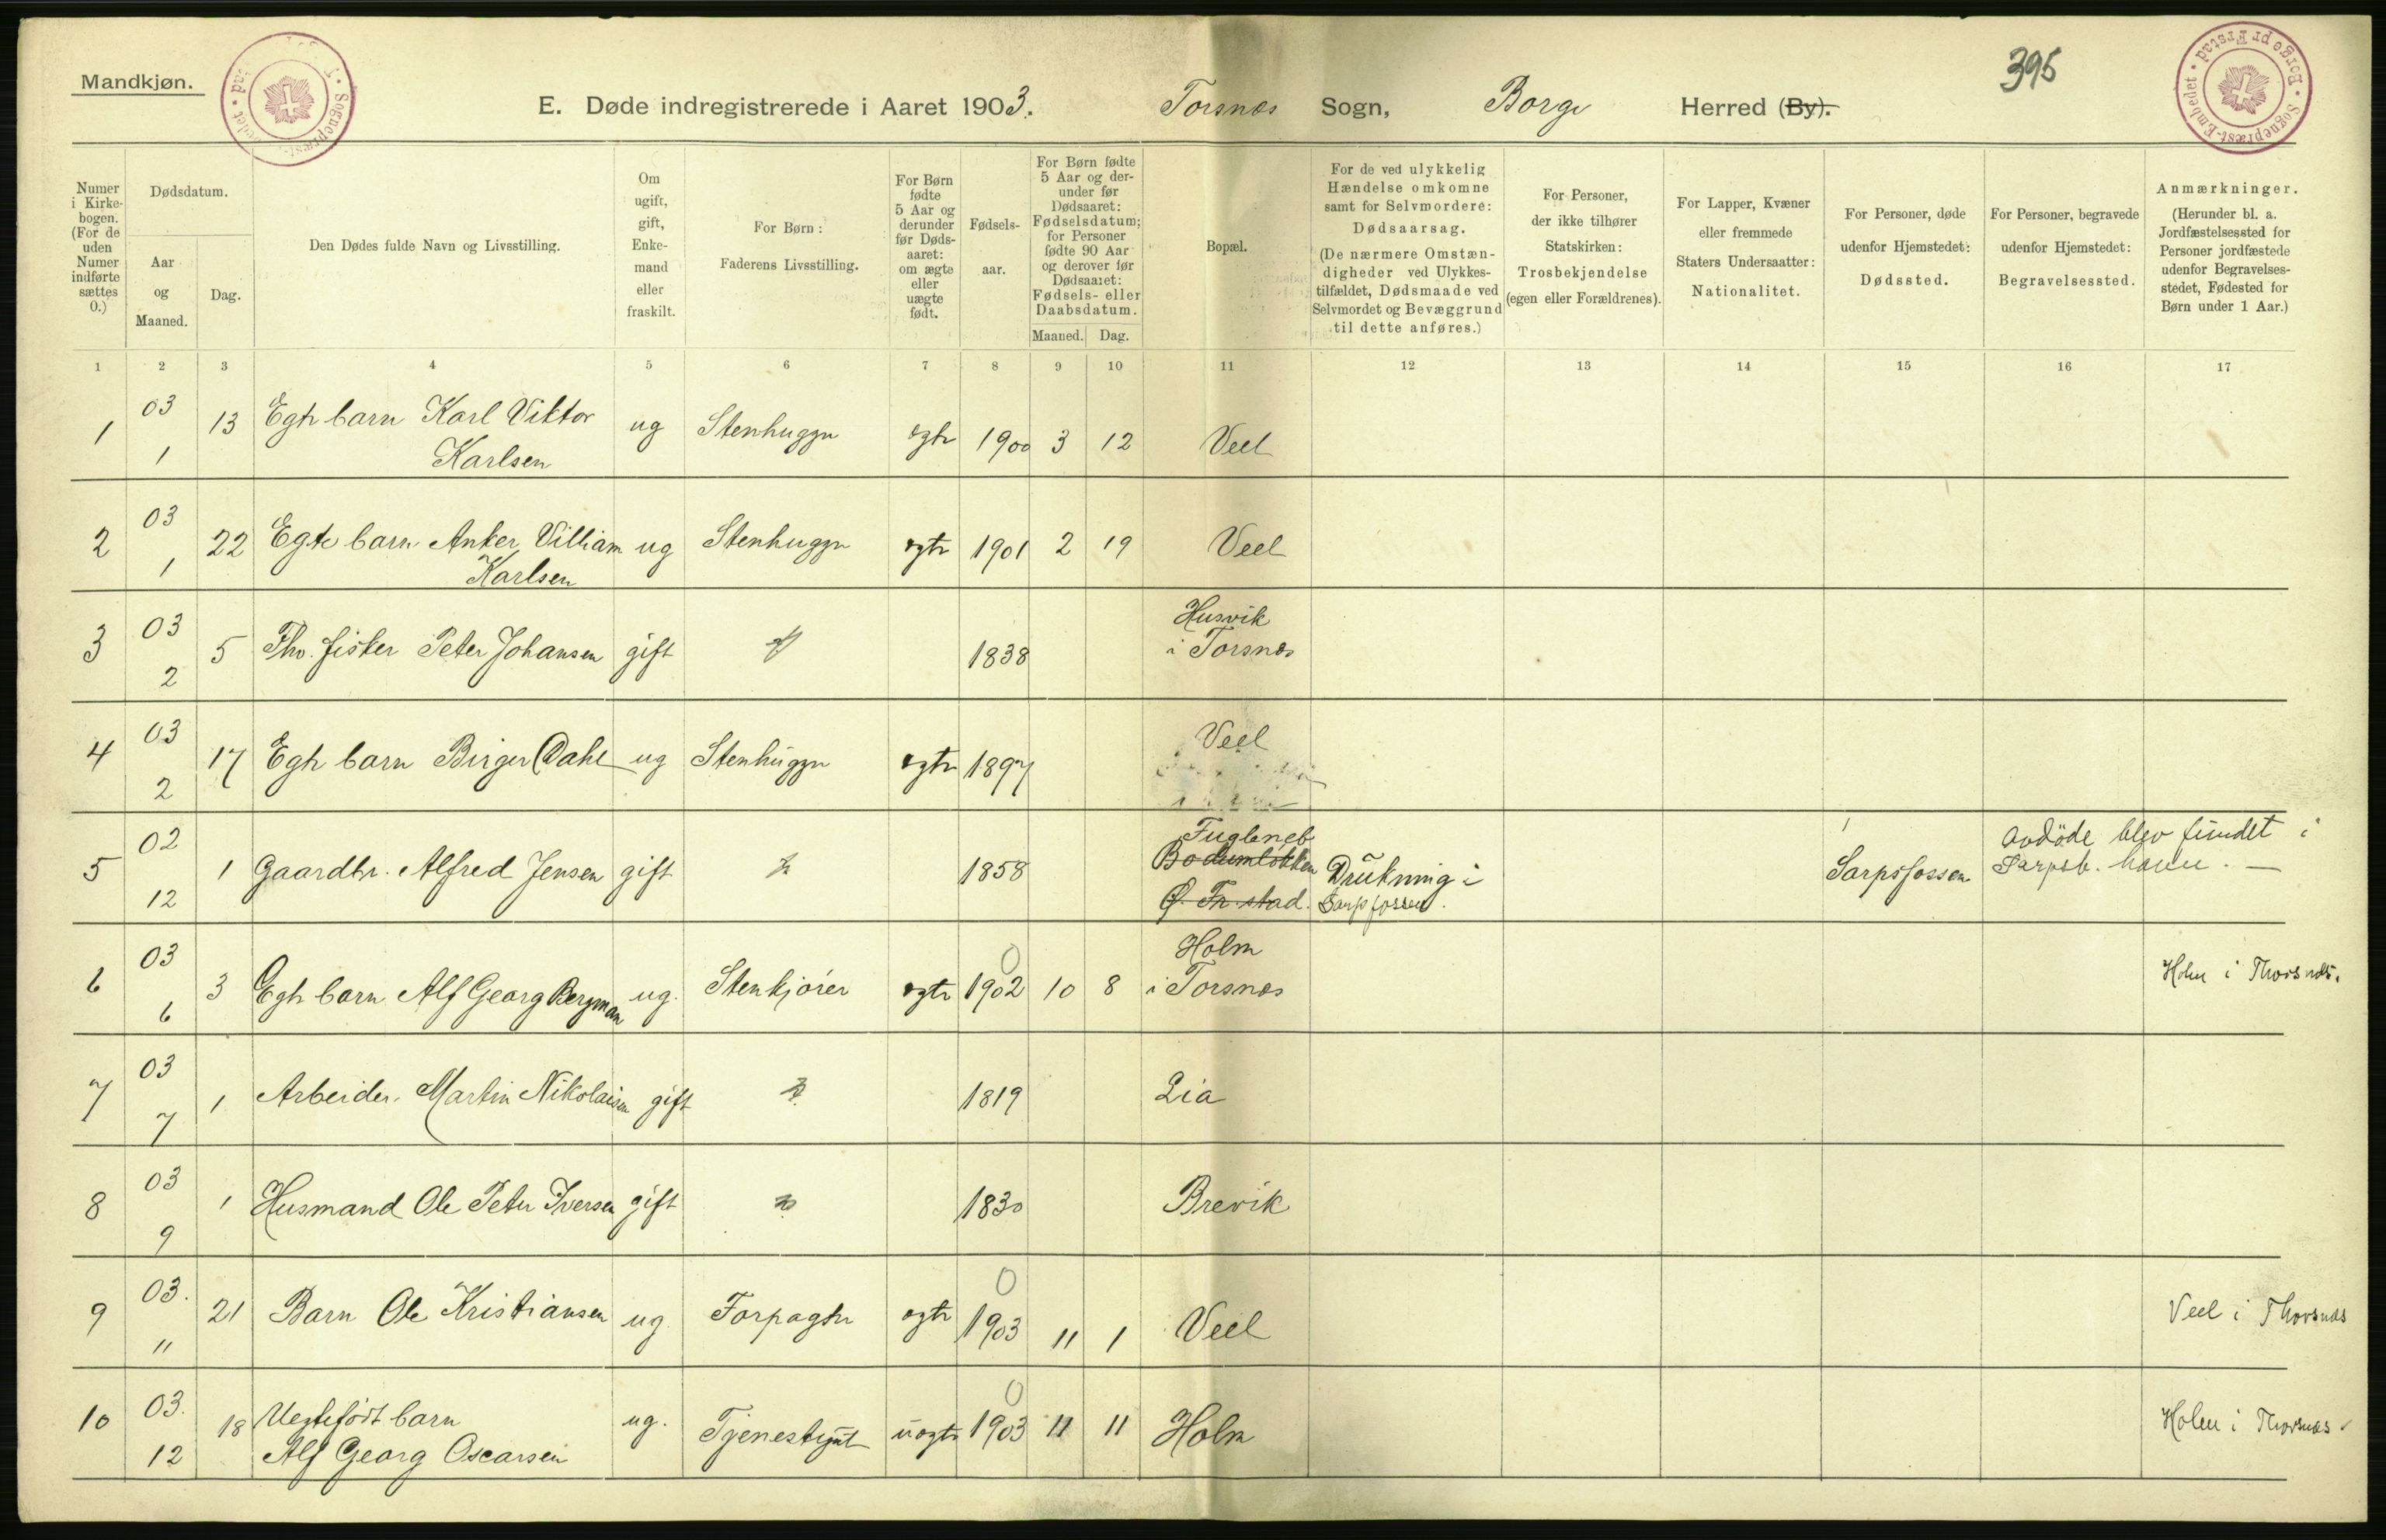 Mandkjøn.
395
Sognepræst-Embedet • Borge pr Frstad •
E. Døde indregistrerede i Aaret 1903. Torsnæs Sogn, Borge Herred (By).
Numer i Kirkebogen. (For de uden Numer indførte sættes 0.)
Dødsdatum.
Aar og Maaned.
Dag.
Den Dødes fulde Navn og Livsstilling.
Om ugift, gift, Enkemand eller fraskilt.
For Børn: Faderens Livsstilling.
For Børn fødte 5 Aar og derunder før Dødsaaret: om ægte eller uægte født.
Fødselsaar.
For Børn fødte 5 Aar og derunder før Dødsaaret: Fødselsdatum; for Personer fødte 90 Aar og derover før Dødsaaret: Fødsels- eller Daabsdatum.
Maaned. Dag.
Bopæl.
For de ved ulykkelig Hændelse omkomne samt for Selvmordere: Dødsaarsag. (De nærmere Omstændigheder ved Ulykkestilfældet, Dødsmaade ved Selvmordet og Bevæggrund til dette anføres.)
For Personer, der ikke tilhører Statskirken: Trosbekjendelse (egen eller Forældrenes).
For Lapper, Kvæner eller fremmede Staters Undersaatter: Nationalitet.
For Personer, døde udenfor Hjemstedet: Dødssted.
For Personer, begravede udenfor Hjemstedet: Begravelsessted.
Anmærkninger. (Herunder bl. a. Jordfæstelsessted for Personer jordfæstede udenfor Begravelsesstedet, Fødested for Børn under 1 Aar.)
1 2 3 4 5 6 7 8 9 10 11 12 13 14 15 16 17
1 03 1 13 Egte barn Karl Viktor Karlsen ug Stenhugger egte 1900 3 12 Veel
2 03 1 22 Egte barn Anker Villiam Karlsen ug Stenhugger egte 1901 2 19 Veel
3 03 2 5 Fhv. fisker Peter Johansen gift 1838 Husvik i Torsnæs
4 03 2 17 Egte barn Birger Dahl ug Stenhugger egte 1897 Veel
5 02 12 1 Gaardbr. Alfred Jensen gift 1858 Fugleneb Bodumløkken Ø. Fr.stad. Drukning i Sarpfossen. Sarpsfossen Avdöde blev fundet i Sarpsb. havn. —
6 03 6 3 Egte barn Alf Georg Bergman ug. Stenkjører egte 0 1902 10 8 Holm i Torsnæs Holm i Thorsnæs.
7 03 7 1 Arbeider. Martin Nikolaisen gift 1819 Lia
8 03 9 1 Husmand Ole Peter Iversen gift 1830 Brevik
9 03. 11 21 Barn Ole Kristiansen ug Forpagter egte 0 1903 11 1 Veel Veel i Thorsnæs
10 03. 12 18 Uegtefødt barn Alf Georg Oscarsen ug. Tjenestgut uegte 0 1903 11 11 Holm Holm i Thorsnæs